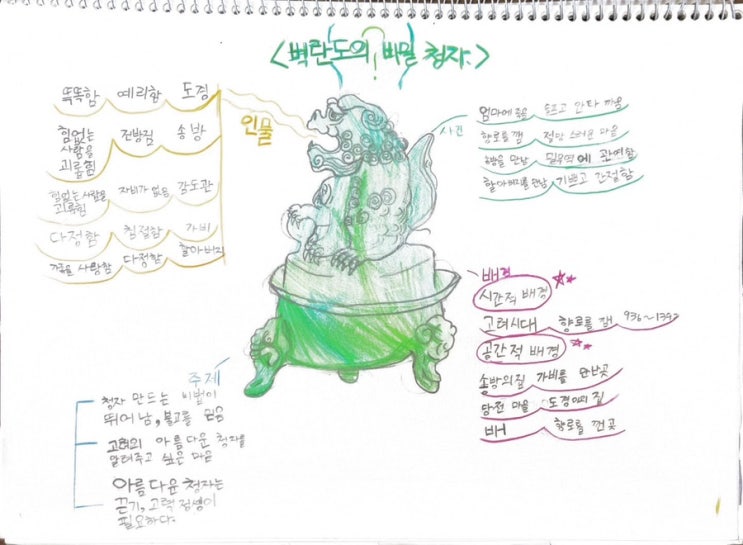 <벽란도의 비밀 청자>
인물
똑똑함 예리함 도경
힘없는 사람을 괴롭힘 건방짐 송방
힘없는 사람을 괴롭힘 자비가 없음 감도관
다정함 친절함 가비
가족을 사랑함 다정함 할아버지
사건
엄마에 죽음 슬프고 안타까움
향로를 깸 절망스러운 마음
송방을 만남 밀무역에 관여함
할아버지를 만남 기쁘고 간절함
배경
시간적 배경
고려시대 향로를 깸 936~1392
공간적 배경
송방의 집 가비를 만난곳
당전 마을 도경이의 집
배 향로를 깬 곳
주제
청자 만드는 비법이
뛰어남,
고려의 아름다운 청자를
알려주고 싶은 마음
아름다운 청자는
끈기, 노력 정성이
필요하다.